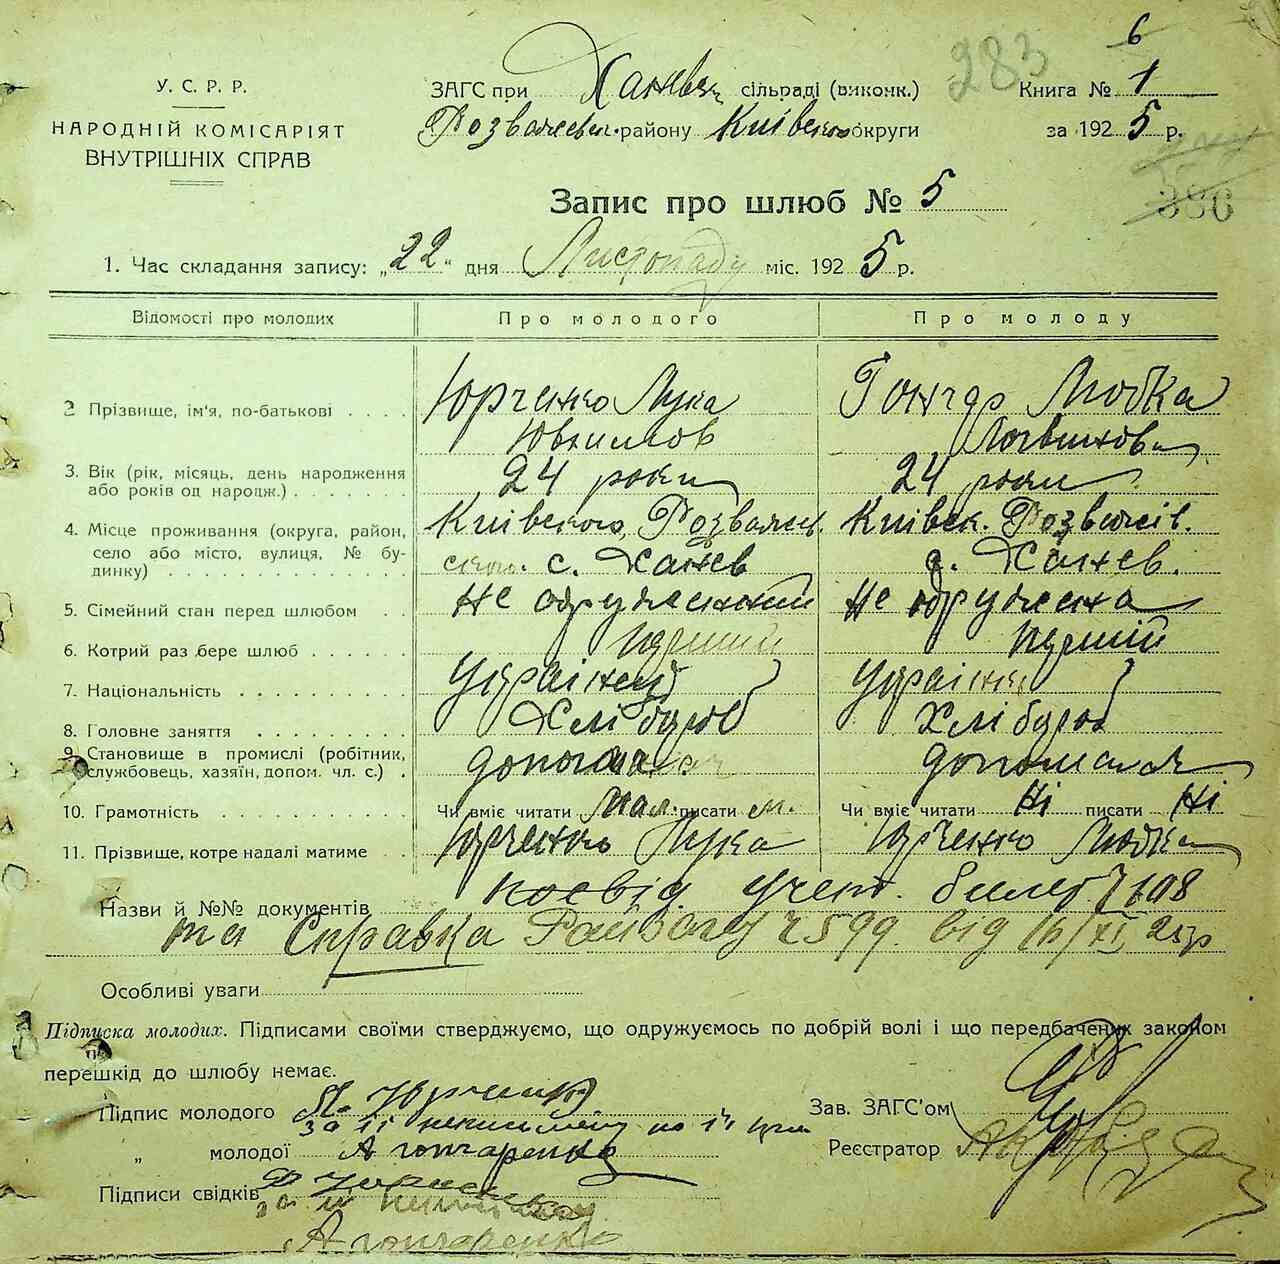 283
6
У. С. Р. Р.
НАРОДНІЙ КОМІСАРІЯТ
ВНУТРІШНІХ СПРАВ
ЗАГС при Ханевськ сільраді (виконк.)
Розважевск. району Київсько округи
Книга № 1
за 1925 р.
386
Запис про шлюб № 5
1. Час складання запису: „22" дня Листопаду міс. 1925 р.
Відомості про молодих Про молодого Про молоду
2 Прізвище, ім'я, по-батькові Юрченко Лука Гончар Любка
Ювхимов Логвинова
3. Вік (рік, місяць, день народження або років од народж.) 24 роки 24 роки
4. Місце проживання (округа, район, Київського, Розважев. Київск. Розважів.
село або місто, вулиця, № будинку) ского. с. Ханев с. Ханев.
5. Сімейний стан перед шлюбом Не одружений Не одружена
6. Котрий раз бере шлюб перший перший
7. Національність Українец Українка
8. Головне заняття Хлібороб хлібороб
9. Становище в промислі (робітник, службовець, хазяїн, допом. чл. с.) допомагає допомагає
10. Грамотність Чи вміє читати мал. писати м. Чи вміє читати Ні писати Ні
11. Прізвище, котре надалі матиме Юрченко Лука Юрченко Любка
Назви й №№ документів посвід. учетн. билет № 108
та Справка Райзагсу № 599 від 16/XI 25 р
Особливі уваги
Підписка молодих. Підписами своїми стверджуємо, що одружуємось по добрій волі і що передбачених законом
перешкід до шлюбу немає.
Підпис молодого Л. Юрченко
за її неписьмену по її
„ молодої А гончаренко
Підписи свідків
А гончаренко
Зав. ЗАГС'ом
Реєстратор